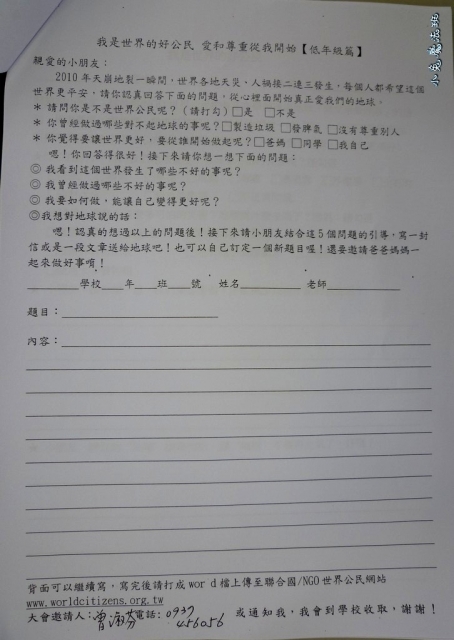 小兔魔法班
我是世界的好公民 愛和尊重從我開始【低年級篇】
親愛的小朋友：
2010年天崩地製一瞬間，世界各地天災、人禍接二連三發生，每個人都希望這個
世界更平安，請你認真回答下面的問題，從心裡面開始真正愛我們的地球。
＊ 請問你是不是世界公民呢？（請打勾）□是 □不是
＊ 你曾經做過哪些對不起地球的事呢？□製造垃圾 □發脾氣 □沒有尊重別人
＊ 你覺得要讓世界更好，要從誰開始做起呢？□爸媽 □同學 □我自己
嗯！你回答得很好！接下來請你想一想下面的問題：
◎ 我看到這個世界發生了哪些不好的事呢？
◎ 我曾經做過哪些不好的事呢？
◎ 我要如何做，能讓自己變得更好呢？
◎我想對地球說的話：
嗯！認真的想過以上的問題後！接下來請小朋友結合這5個問題的引導，寫一封
信或是一段文章送給地球吧！也可以自己訂定一個新題目喔！還要邀請爸爸媽媽一
起來做好事唷！
________學校____年____班____號 姓名__________ 老師______________
題目：__________________________
內容：
背面可以繼續寫，寫完後請打成word檔上傳至聯合國/NGO世界公民網站
www.worldcitizens.org.tw
大會邀請人：曾 芬電話：0937 456056 或通知我，我會到學校收取，謝謝！